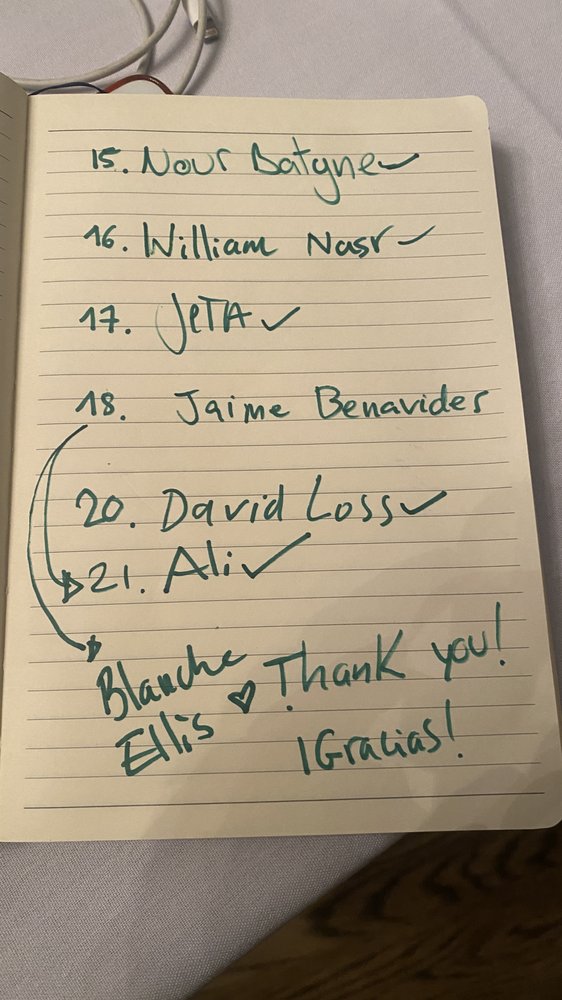 15. Nour Batyne ✓
16. William Nasr ✓
17. JETA ✓
18. Jaime Benavides
20. David Loss ✓
21. Ali ✓
Blanche
Ellis ♡ Thank you!
¡Gracias!